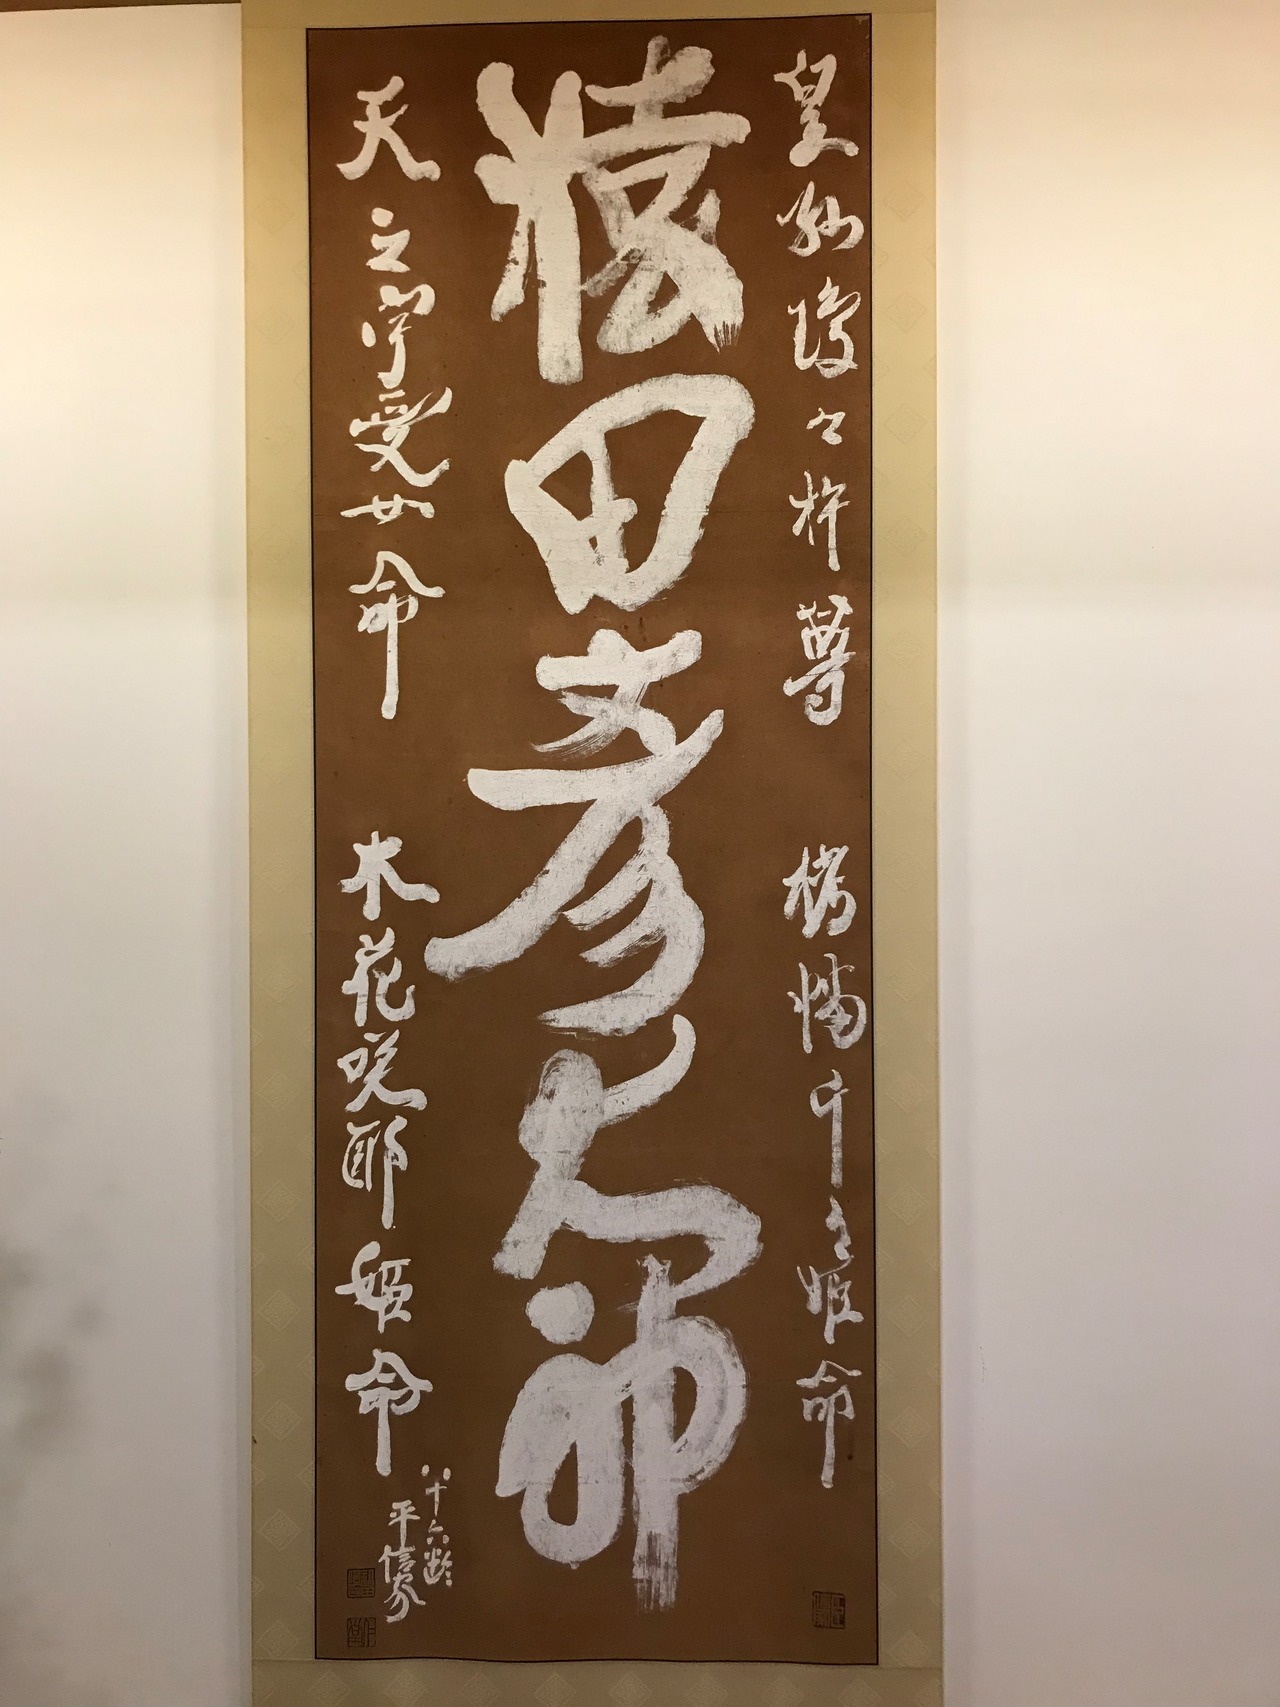 皇孫瓊々杵尊 栲幡千々姫命
猿田彦大神
天之宇受女命 木花咲耶姫命
八十六齢
平信